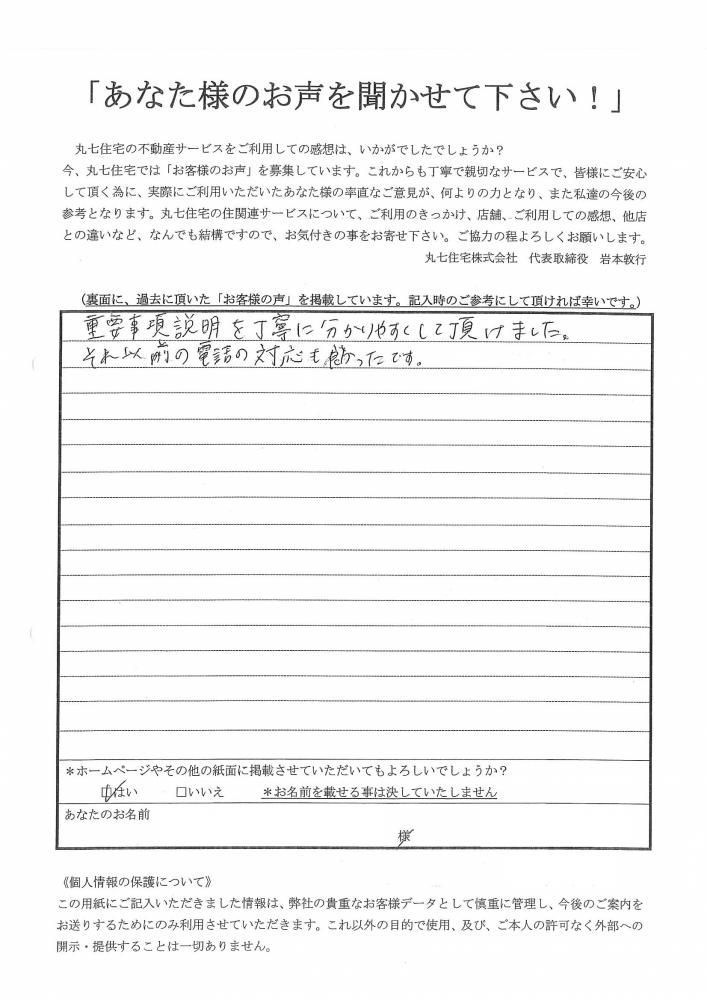 「あなた様のお声を聞かせて下さい！」
丸七住宅の不動産サービスをご利用しての感想は、いかがでしたでしょうか？
今、丸七住宅では「お客様のお声」を募集しています。これからも丁寧で親切なサービスで、皆様にご安心
して頂く為に、実際にご利用いただいたあなた様の率直なご意見が、何よりの力となり、また私達の今後の
参考となります。丸七住宅の住関連サービスについて、ご利用のきっかけ、店舗、ご利用しての感想、他店
との違いなど、なんでも結構ですので、お気付きの事をお寄せ下さい。ご協力の程よろしくお願いします。
丸七住宅株式会社　代表取締役　岩本敦行
（裏面に、過去に頂いた「お客様の声」を掲載しています。記入時のご参考にして頂ければ幸いです。）
重要事項説明を丁寧に分かりやすくして頂けました。
それ以前の電話の対応も良かったです。
＊ホームページやその他の紙面に掲載させていただいてもよろしいでしょうか？
☑はい　□いいえ　＊お名前を載せる事は決していたしません
あなたのお名前
様
《個人情報の保護について》
この用紙にご記入いただきました情報は、弊社の貴重なお客様データとして慎重に管理し、今後のご案内を
お送りするためにのみ利用させていただきます。これ以外の目的で使用、及び、ご本人の許可なく外部への
開示・提供することは一切ありません。